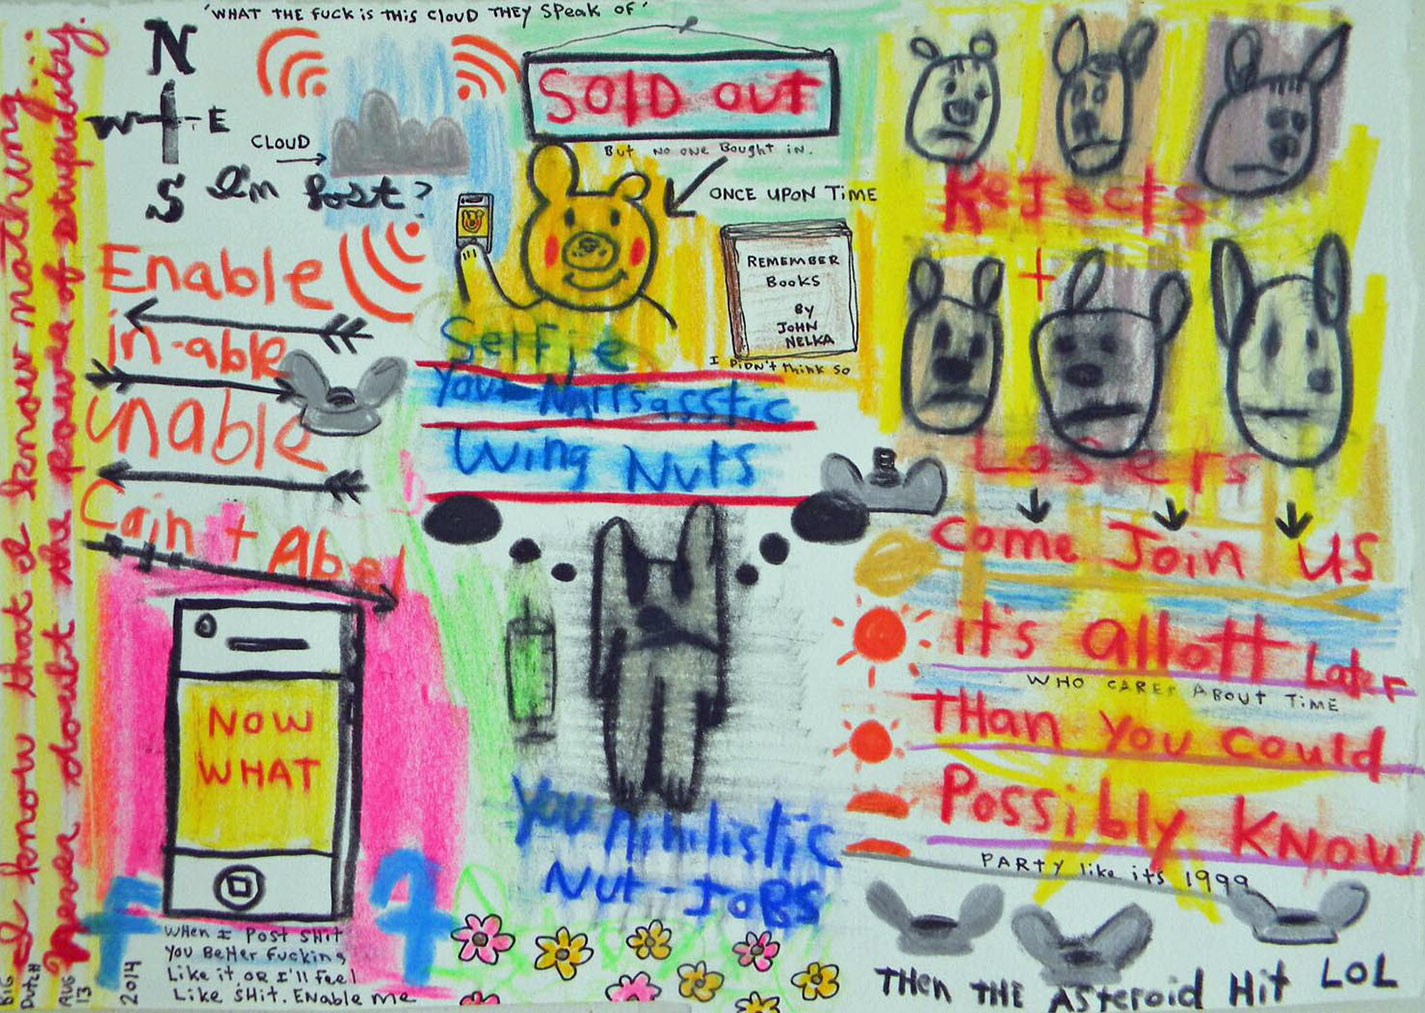 'WHAT THE FUCK IS THIS CLOUD THEY SPEAK OF'
I know that I know nothing...
Never doubt the power of stupidity.
N
W E
S
CLOUD
I'm Lost?
Enable
in-able
unable
Cain + Abel
NOW
WHAT
f
WHEN I POST SHIT
YOU BETTER FUCKING
LIKE IT OR I'LL FEEL
LIKE SHIT. ENABLE ME
BIG
DUTCH
AUG
13
2014
SOLD OUT
BUT NO ONE BOUGHT IN.
ONCE UPON TIME
REMEMBER
BOOKS
BY
JOHN
NELKA
I DIDN'T THINK SO
Selfie
You-Narrsasstic
Wing Nuts
You Nihilistic
Nut-JOBS
Rejects
+
Losers
Come Join US
it's allott Later
WHO CARES ABOUT TIME
THan you could
Possibly KNOW!
PARTY like its 1999
THen THE Asteroid Hit LOL